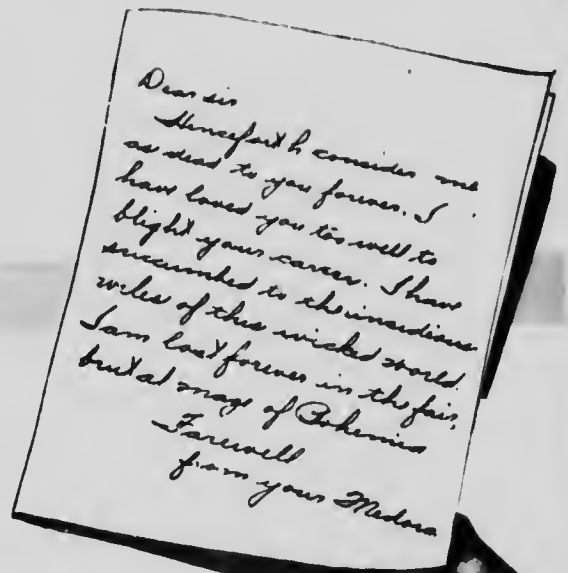 Dear sir
Henceforth consider me
as dead to you forever. I
have loved you too well to
blight your career. I have
succumbed to the insidious
wiles of this wicked world.
I am lost forever in the fair,
brutal maze of Bohemia
Farewell
from your Medora